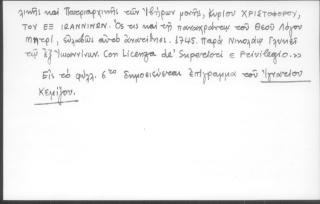 λικῆς καὶ Πατριαρχικῆς τῶν Ἰβήρων μονῆς, κυρίου ΧΡΙΣΤΟΦΟΡΟΥ,
ΤΟΥ ΕΞ ΙΩΑΝΝΙΝΩΝ. Ὅς τις καὶ τῇ πανάχραντῳ τοῦ Θεοῦ Λόγου
Μητρί, αὐτὸ ἀνατίθησι. 1745. Παρὰ Νικολάῳ Γλυκεῖ
τῷ ἐξ Ἰωαννίνων. Con Licenza de' Superiori e Privilegio.»
Εἰς τὸ φύλλ. 6ΤΟ δημοσιεύεται ἐπίγραμμα τοῦ Ἰγνατίου